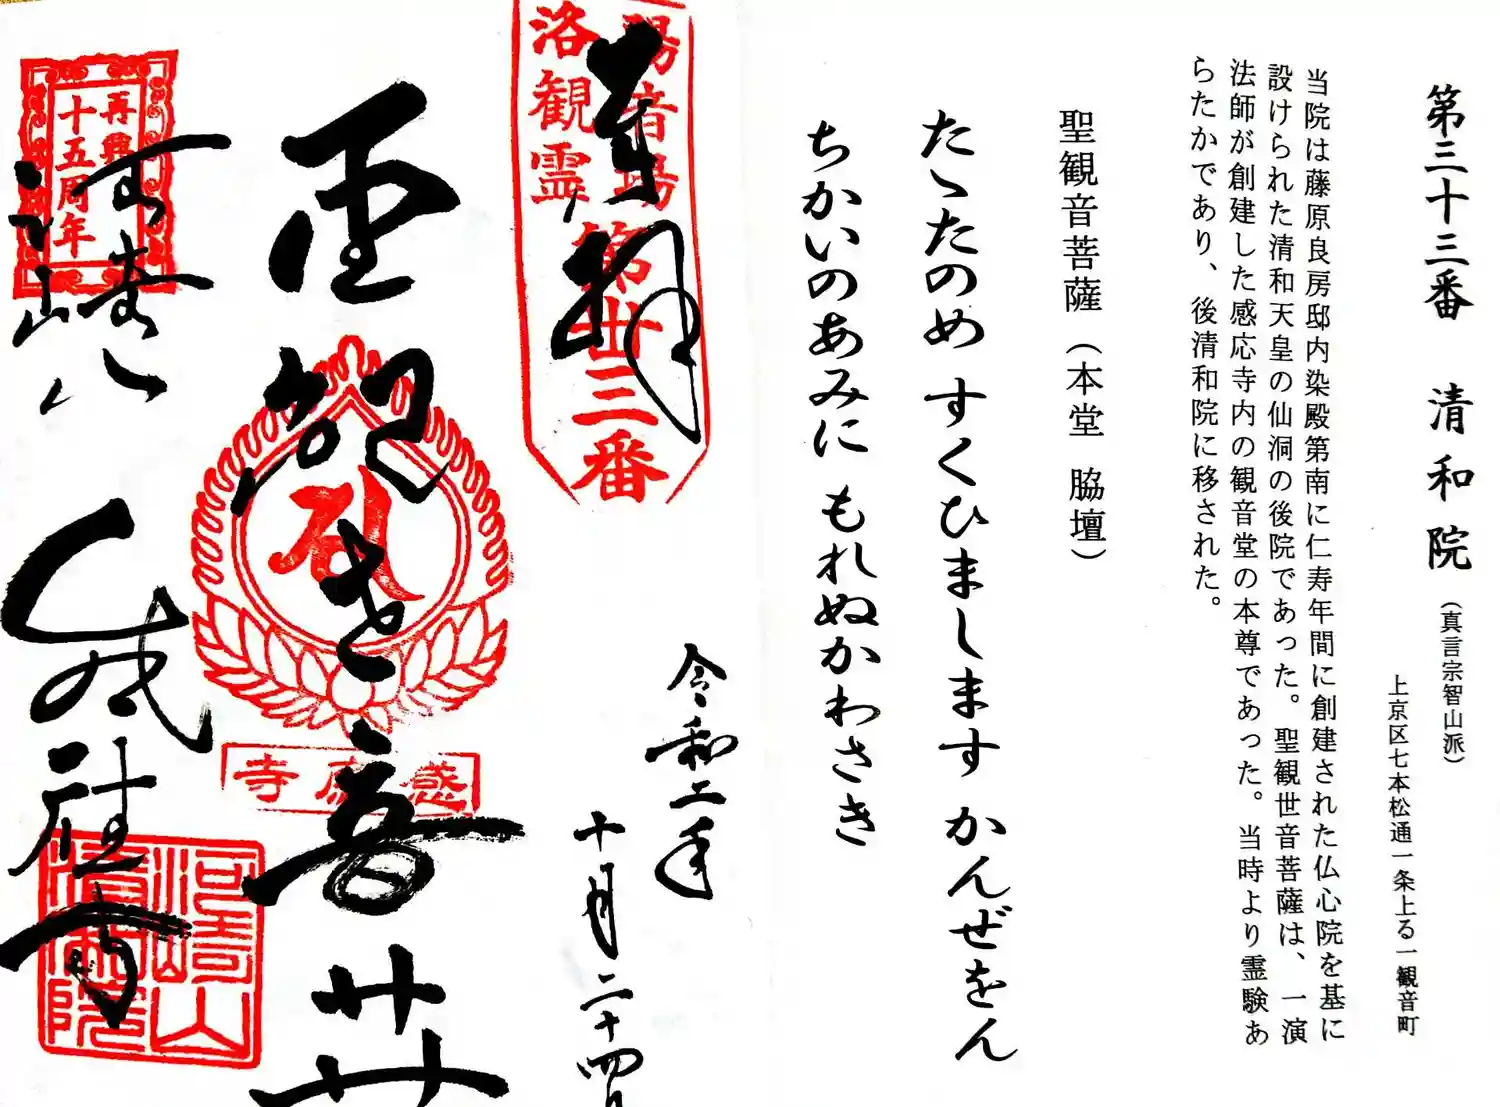 第三十三番 清和院 (真言宗智山派)
上京区七本松通一条上る一観音町
当院は藤原良房邸内染殿第南に仁寿年間に創建された仏心院を基に
設けられた清和天皇の仙洞の後院であった。聖観世音菩薩は、一演
法師が創建した感応寺内の観音堂の本尊であった。当時より霊験あ
らたかであり、後清和院に移された。
聖観音菩薩(本堂 脇壇)
たゝたのめ すくひまします かんぜをん
ちかいのあみに もれぬかわさき
奉拝
洛陽
観音
霊場
第卅三番
令和二年
十月二十四日
聖観世音
感應寺
再興
十五周年
河崎山
清和院